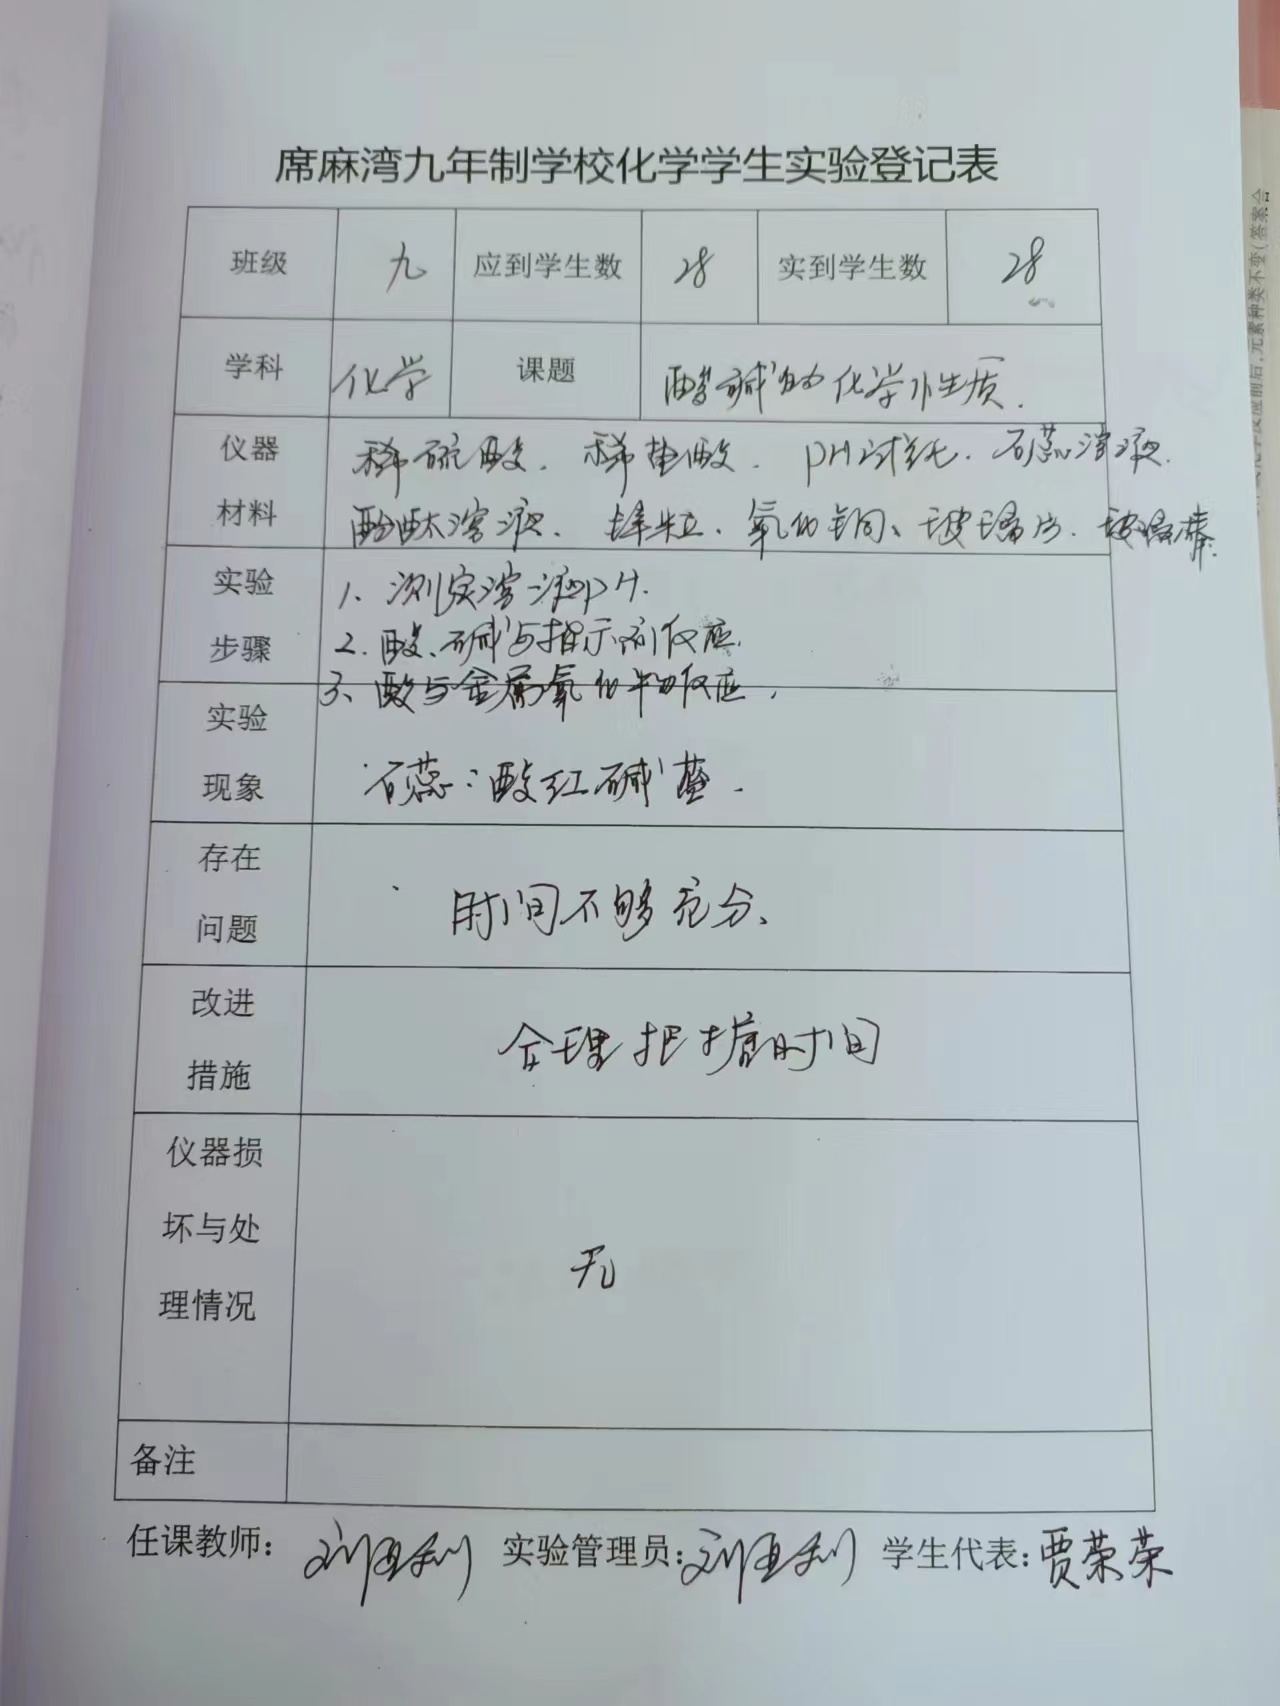 席麻湾九年制学校化学学生实验登记表
班级 九 应到学生数 28 实到学生数 28
学科 化学 课题 酸碱的化学性质.
仪器 稀硫酸. 稀盐酸. PH试纸. 石蕊溶液.
材料 酚酞溶液. 锌粒、氧化铜、玻璃片. 玻璃棒.
实验 1、测定溶液PH.
步骤 2.酸、碱与指示剂反应.
3、酸与金属氧化物反应.
实验
现象 石蕊:酸红碱蓝.
存在
问题 时间不够充分、
改进
措施 合理把握时间
仪器损
坏与处 无
理情况
备注
任课教师: 刘亚利 实验管理员: 刘亚利 学生代表: 贾荣荣
元素种类不变(答案合